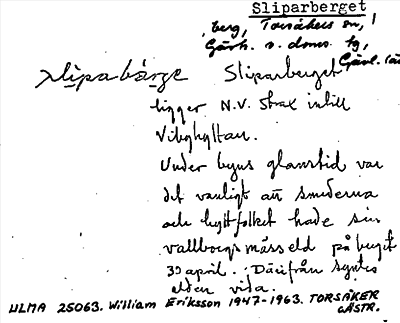 Sliparberget
, berg, Torsåkers sn,
Gävh. s. doms. tg,
Gävl. län
slipabärge Sliparberget
ligger N.V. Strax intill
Vibyhyttan.
Under byns glanstid var
det vanligt att smederna
och hyttfolket hade sin
vallborgsmässeld på berget
30 april. Därifrån syntes
elden vida.
ULMA 25063. William Eriksson 1947-1963. TORSÅKER
GÄSTR.